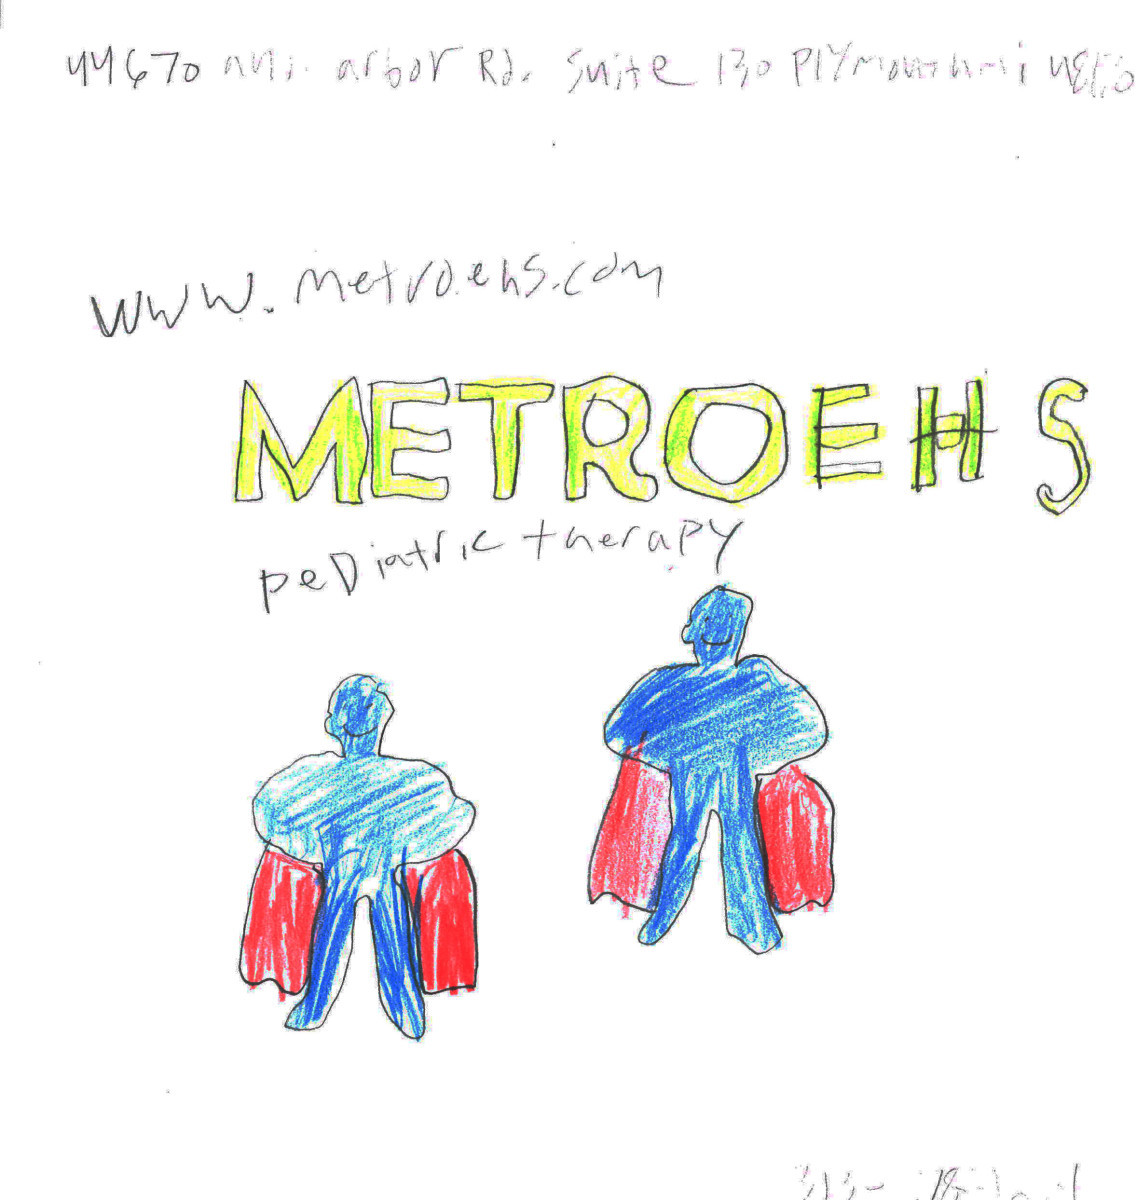 44670 ann arbor Rd. Suite 130 Plymouth mi
www.metroehs.com
METROEHS
peDiatric therapy
313-